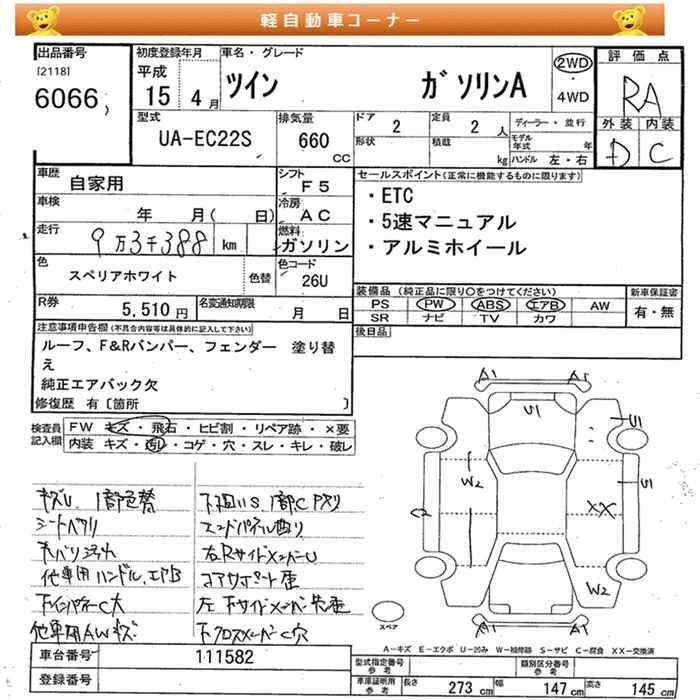 軽自動車コーナー
出品番号
[2118]
6066
初度登録年月
平成
15 4月
車名・グレード
ツイン ガソリンA
2WD
・
4WD
評価点
RA
外装 内装
D C
型式
UA-EC22S
排気量
660
CC
ドア
2
定員
2人
ディーラー・並行
形状
積載
kg
モデル年式
年
ハンドル 左・右
車歴
自家用
シフト
F5
車検
年 月( 日)
冷房
AC
走行
9万3千388 km
燃料
ガソリン
色
スペリアホワイト
色替
色コード
26U
R券
5,510円
名変通知期限
月 日
セールスポイント(正常に機能するものに限ります)
・ETC
・5速マニュアル
・アルミホイール
装備品 (純正品に限り〇をつけてください)
PS PW ABS エアB AW
SR ナビ TV カワ
新車保証書
有・無
後日品
注意事項申告欄(不具合内容等は具体的に記入して下さい)
ルーフ、F&Rバンパー、フェンダー 塗り替
え
純正エアバック欠
修復歴 有〔箇所 〕
検査員
記入欄
FW キズ・飛石・ヒビ割・リペア跡・×要
内装 キズ・汚れ・コゲ・穴・スレ・キレ・破レ
キズU 1部色替
シートヘタリ
天バリ汚れ
他車用ハンドル、エアB
下インパネC大
他車用AWキズ
下廻りS 1部C
エンドパネル曲り
右RサイドメンバーU
コアサポート歪
左下サイドメンバー先歪
下クロスメンバーC穴
A1 A1
U1
U1
W2
U1
XX
W2
スペア
A-キズ E-エクボ U-凹み W-補修跡 S-サビ C-腐食 XX-交換済
車台番号
111582
登録番号
型式指定番号
参考
類別区分番号
参考
車庫証明用
参考
長さ
273cm
幅
147cm
高さ
145cm